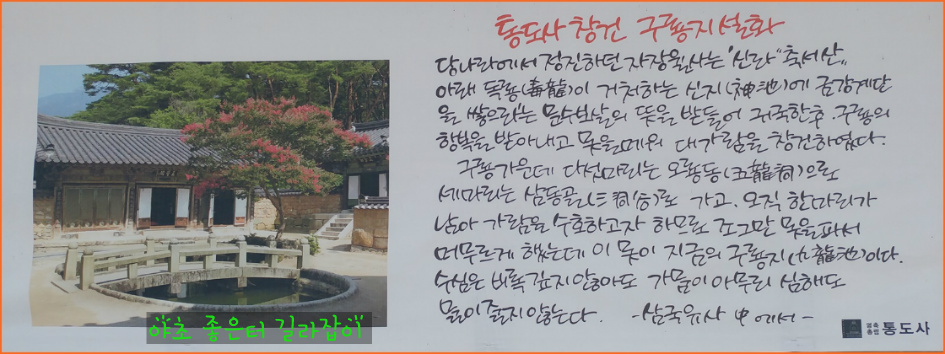 통도사 창건 구룡지 설화
당나라에서 정진하던 자장율사는 '신라" 축서산„
아래 독룡(毒龍)이 거처하는 신지(神池)에 금강계단
을 쌓으라"는 문수보살의 뜻을 받들어 귀국한후. 구룡의
항복을 받아내고 못을 메워 대가람을 창건하였다.
구룡가운데 다섯마리는 오룡동(五龍洞)으로
세마리는 삼동골(三洞谷)로 가고. 오직 한마리가
남아 가람을 수호하고자 하므로 조그만 못을 파서
머무르게 했는데 이 못이 지금의 구룡지(九龍池)이다.
수심은 비록 깊지않아도 가뭄이 아무리 심해도
물이 줄지않는다. -삼국유사 中에서-
야초 좋은터 길라잡이
통도사